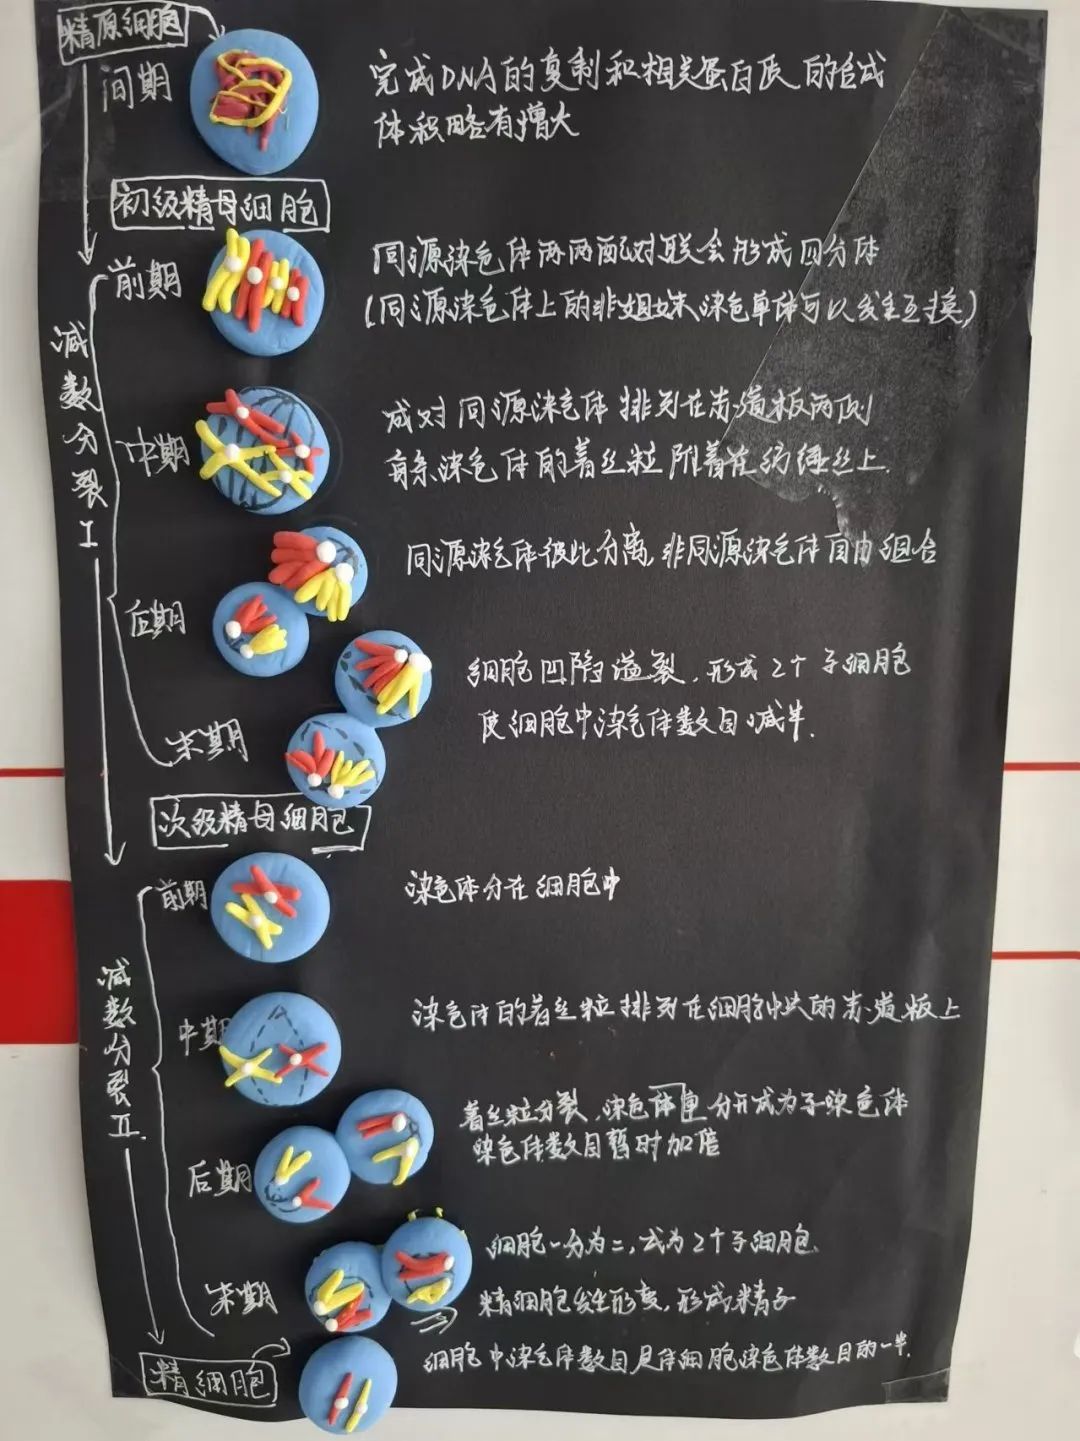 精原细胞
间期
完成DNA的复制和相关蛋白质的合成
体积略有增大
初级精母细胞
减数分裂I
前期
同源染色体两两配对联会形成四分体
(同源染色体上的非姐妹染色单体可以发生互换)
中期
成对同源染色体排列在赤道板两侧
每条染色体的着丝粒附着在纺锤丝上.
后期
同源染色体彼此分离,非同源染色体自由组合
末期
细胞凹陷缢裂,形成2个子细胞
使细胞中染色体数目减半.
次级精母细胞
减数分裂II.
前期
染色体分在细胞中
中期
染色体的着丝粒排列在细胞中央的赤道板上
后期
着丝粒分裂,染色体单分开成为子染色体
染色体数目暂时加倍
末期
细胞一分为二,成为2个子细胞.
精细胞发生形变,形成精子
精细胞
细胞中染色体数目是体细胞染色体数目的一半.